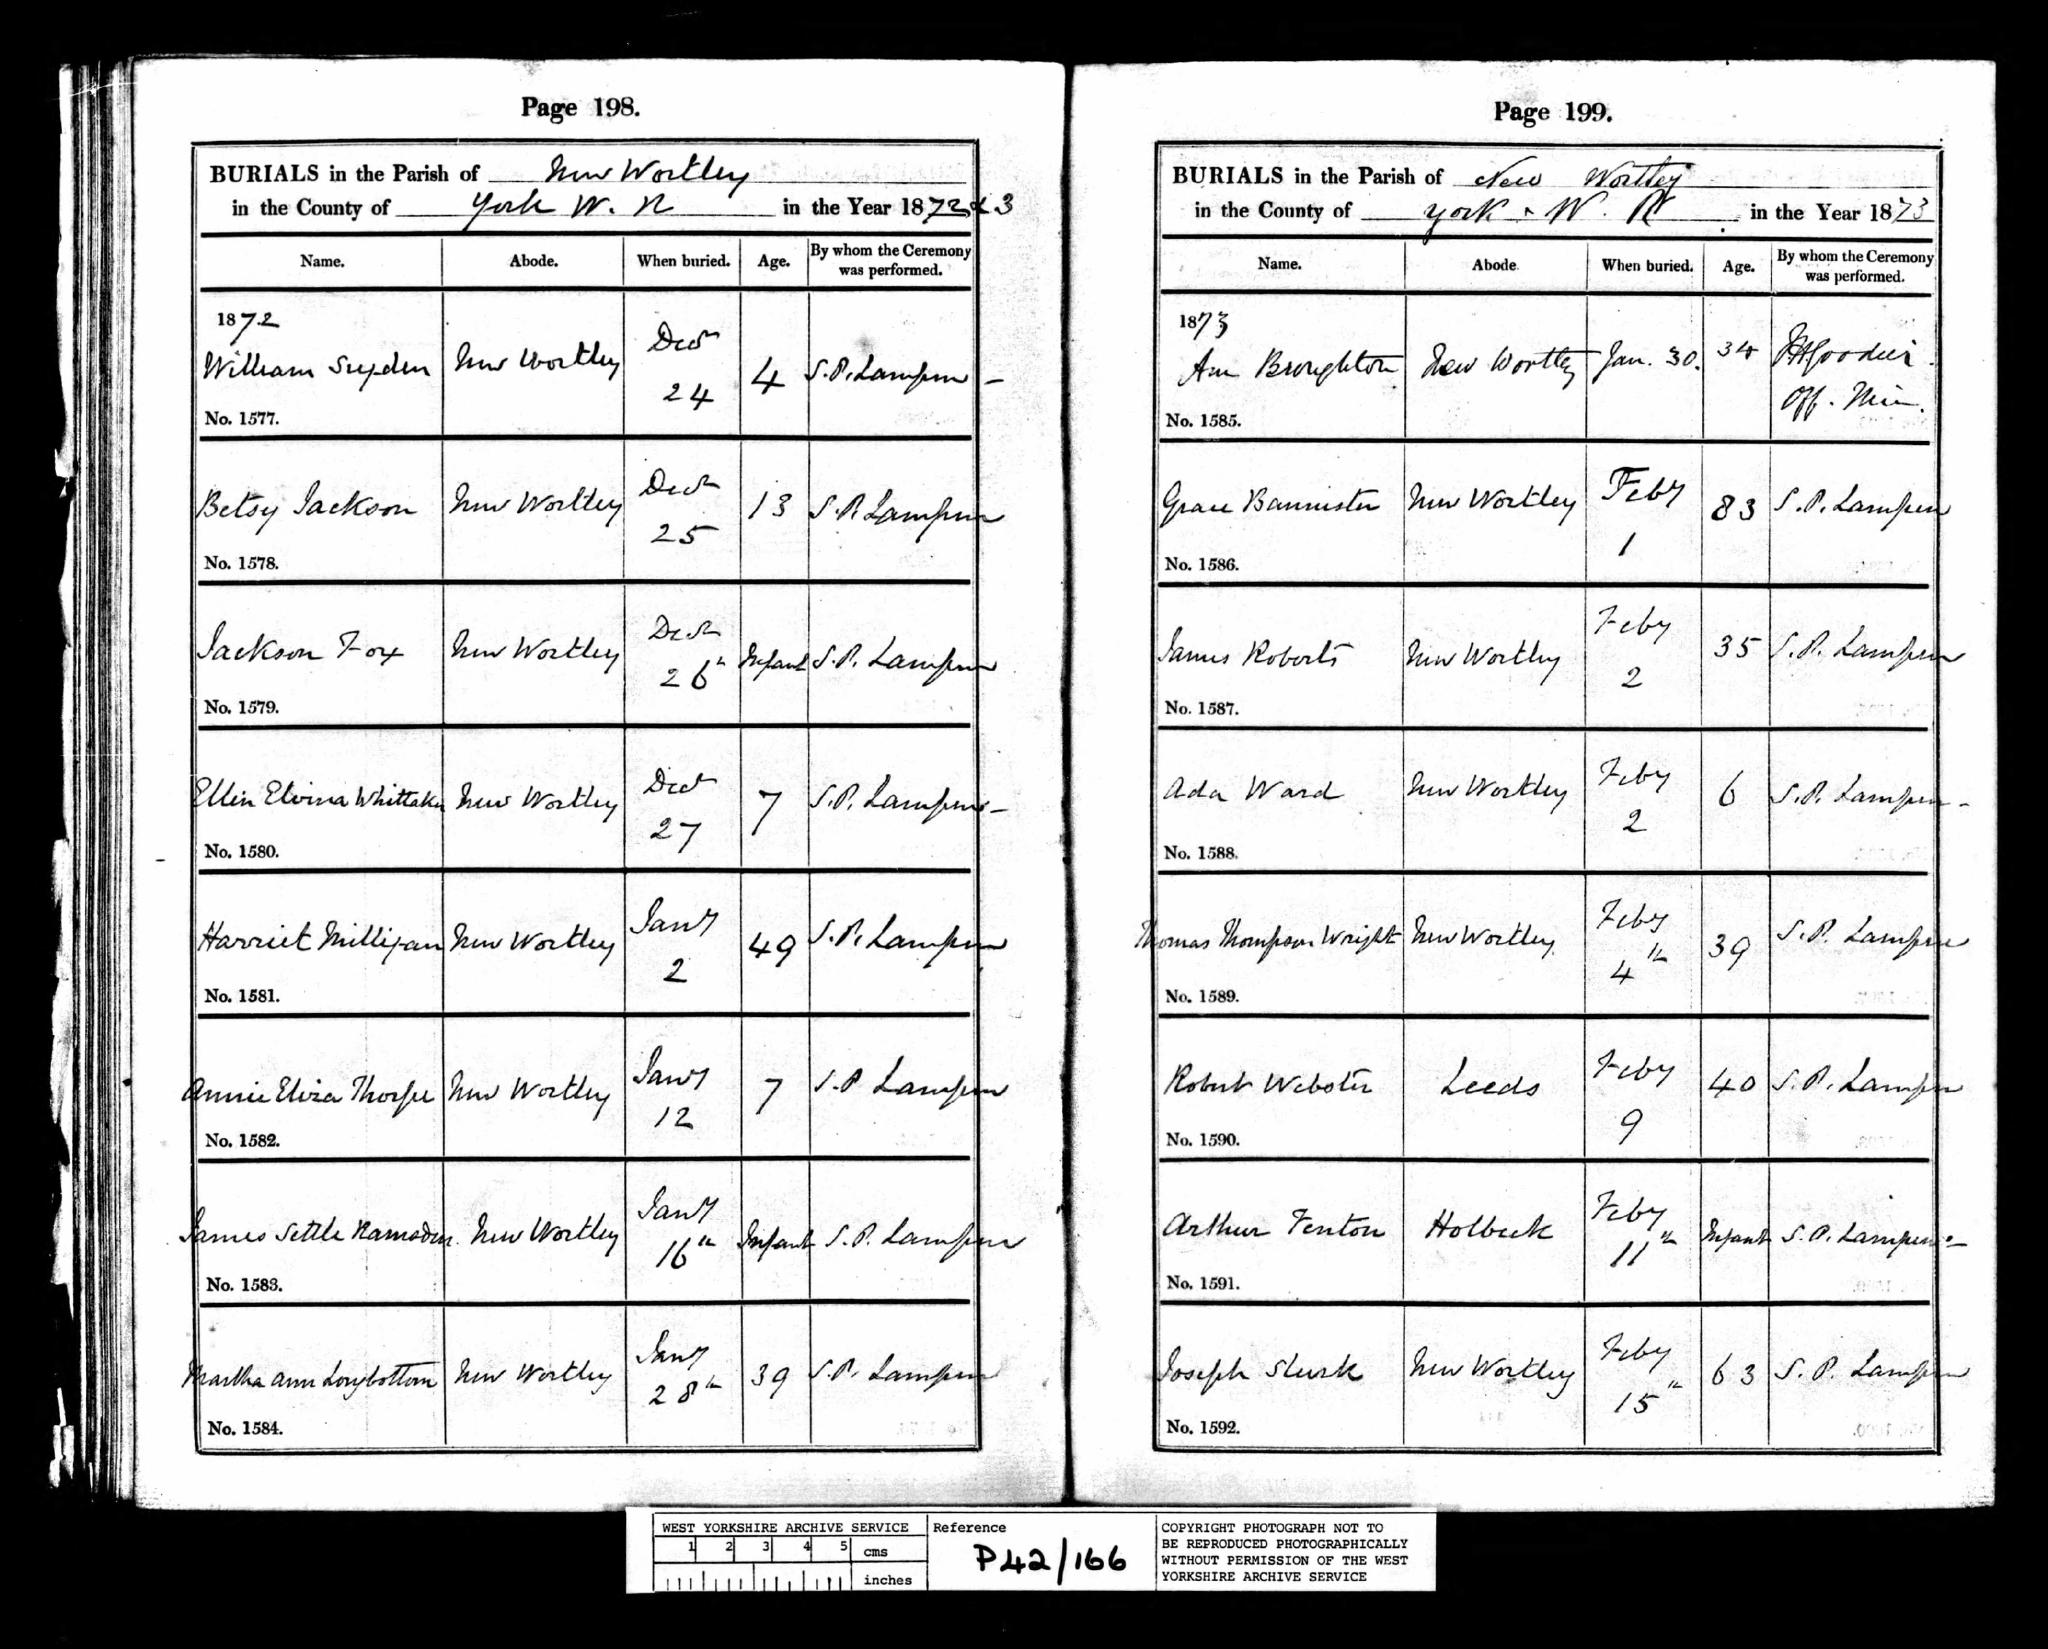 Page 198.
BURIALS in the Parish of New Wortley
in the County of York W. R in the Year 1872 & 3
Name. Abode. When buried. Age. By whom the Ceremony was performed.
1872
William Sugden New Wortley Decr 24 4 S.P. Lampen
No. 1577.
Betsy Jackson New Wortley Decr 25 13 S.P. Lampen
No. 1578.
Jackson Fox New Wortley Decr 26th Infant S.P. Lampen
No. 1579.
Ellen Elvina Whittaker New Wortley Decr 27 7 S.P. Lampen
No. 1580.
Harriet Milligan New Wortley Jany 2 49 S.P. Lampen
No. 1581.
Annie Eliza Thorpe New Wortley Jany 12 7 S.P. Lampen
No. 1582.
James Settle Ramsden New Wortley Jany 16th Infant S.P. Lampen
No. 1583.
Martha Ann Longbottom New Wortley Jany 28th 39 S.P. Lampen
No. 1584.
Page 199.
BURIALS in the Parish of New Wortley
in the County of York W. R in the Year 1873
Name. Abode When buried. Age. By whom the Ceremony was performed.
1873
Ann Broughton New Wortley Jan. 30. 34 Off. Min.
No. 1585.
Grace Bannister New Wortley Feby 1 83 S.P. Lampen
No. 1586.
James Roberts New Wortley Feby 2 35 S.P. Lampen
No. 1587.
Ada Ward New Wortley Feby 2 6 S.P. Lampen
No. 1588.
Thomas Thompson Wright New Wortley Feby 4th 39 S.P. Lampen
No. 1589.
Robert Webster Leeds Feby 9 40 S.P. Lampen
No. 1590.
Arthur Fenton Holbeck Feby 11th Infant S.P. Lampen
No. 1591.
Joseph New Wortley Feby 15th 63 S.P. Lampen
No. 1592.
WEST YORKSHIRE ARCHIVE SERVICE
1 2 3 4 5 cms
inches
Reference
P42/166
COPYRIGHT PHOTOGRAPH NOT TO
BE REPRODUCED PHOTOGRAPHICALLY
WITHOUT PERMISSION OF THE WEST
YORKSHIRE ARCHIVE SERVICE